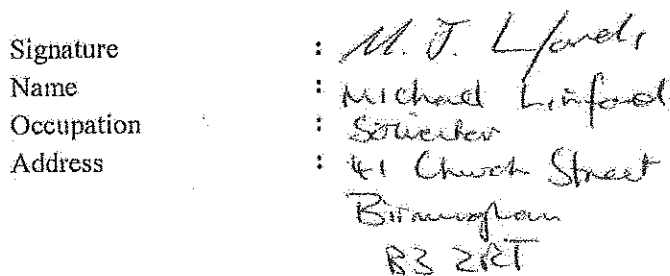 Signature : M. J. Linford
Name : Michael Linford
Occupation : Solicitor
Address : 41 Church Street
Birmingham
B3 2RT